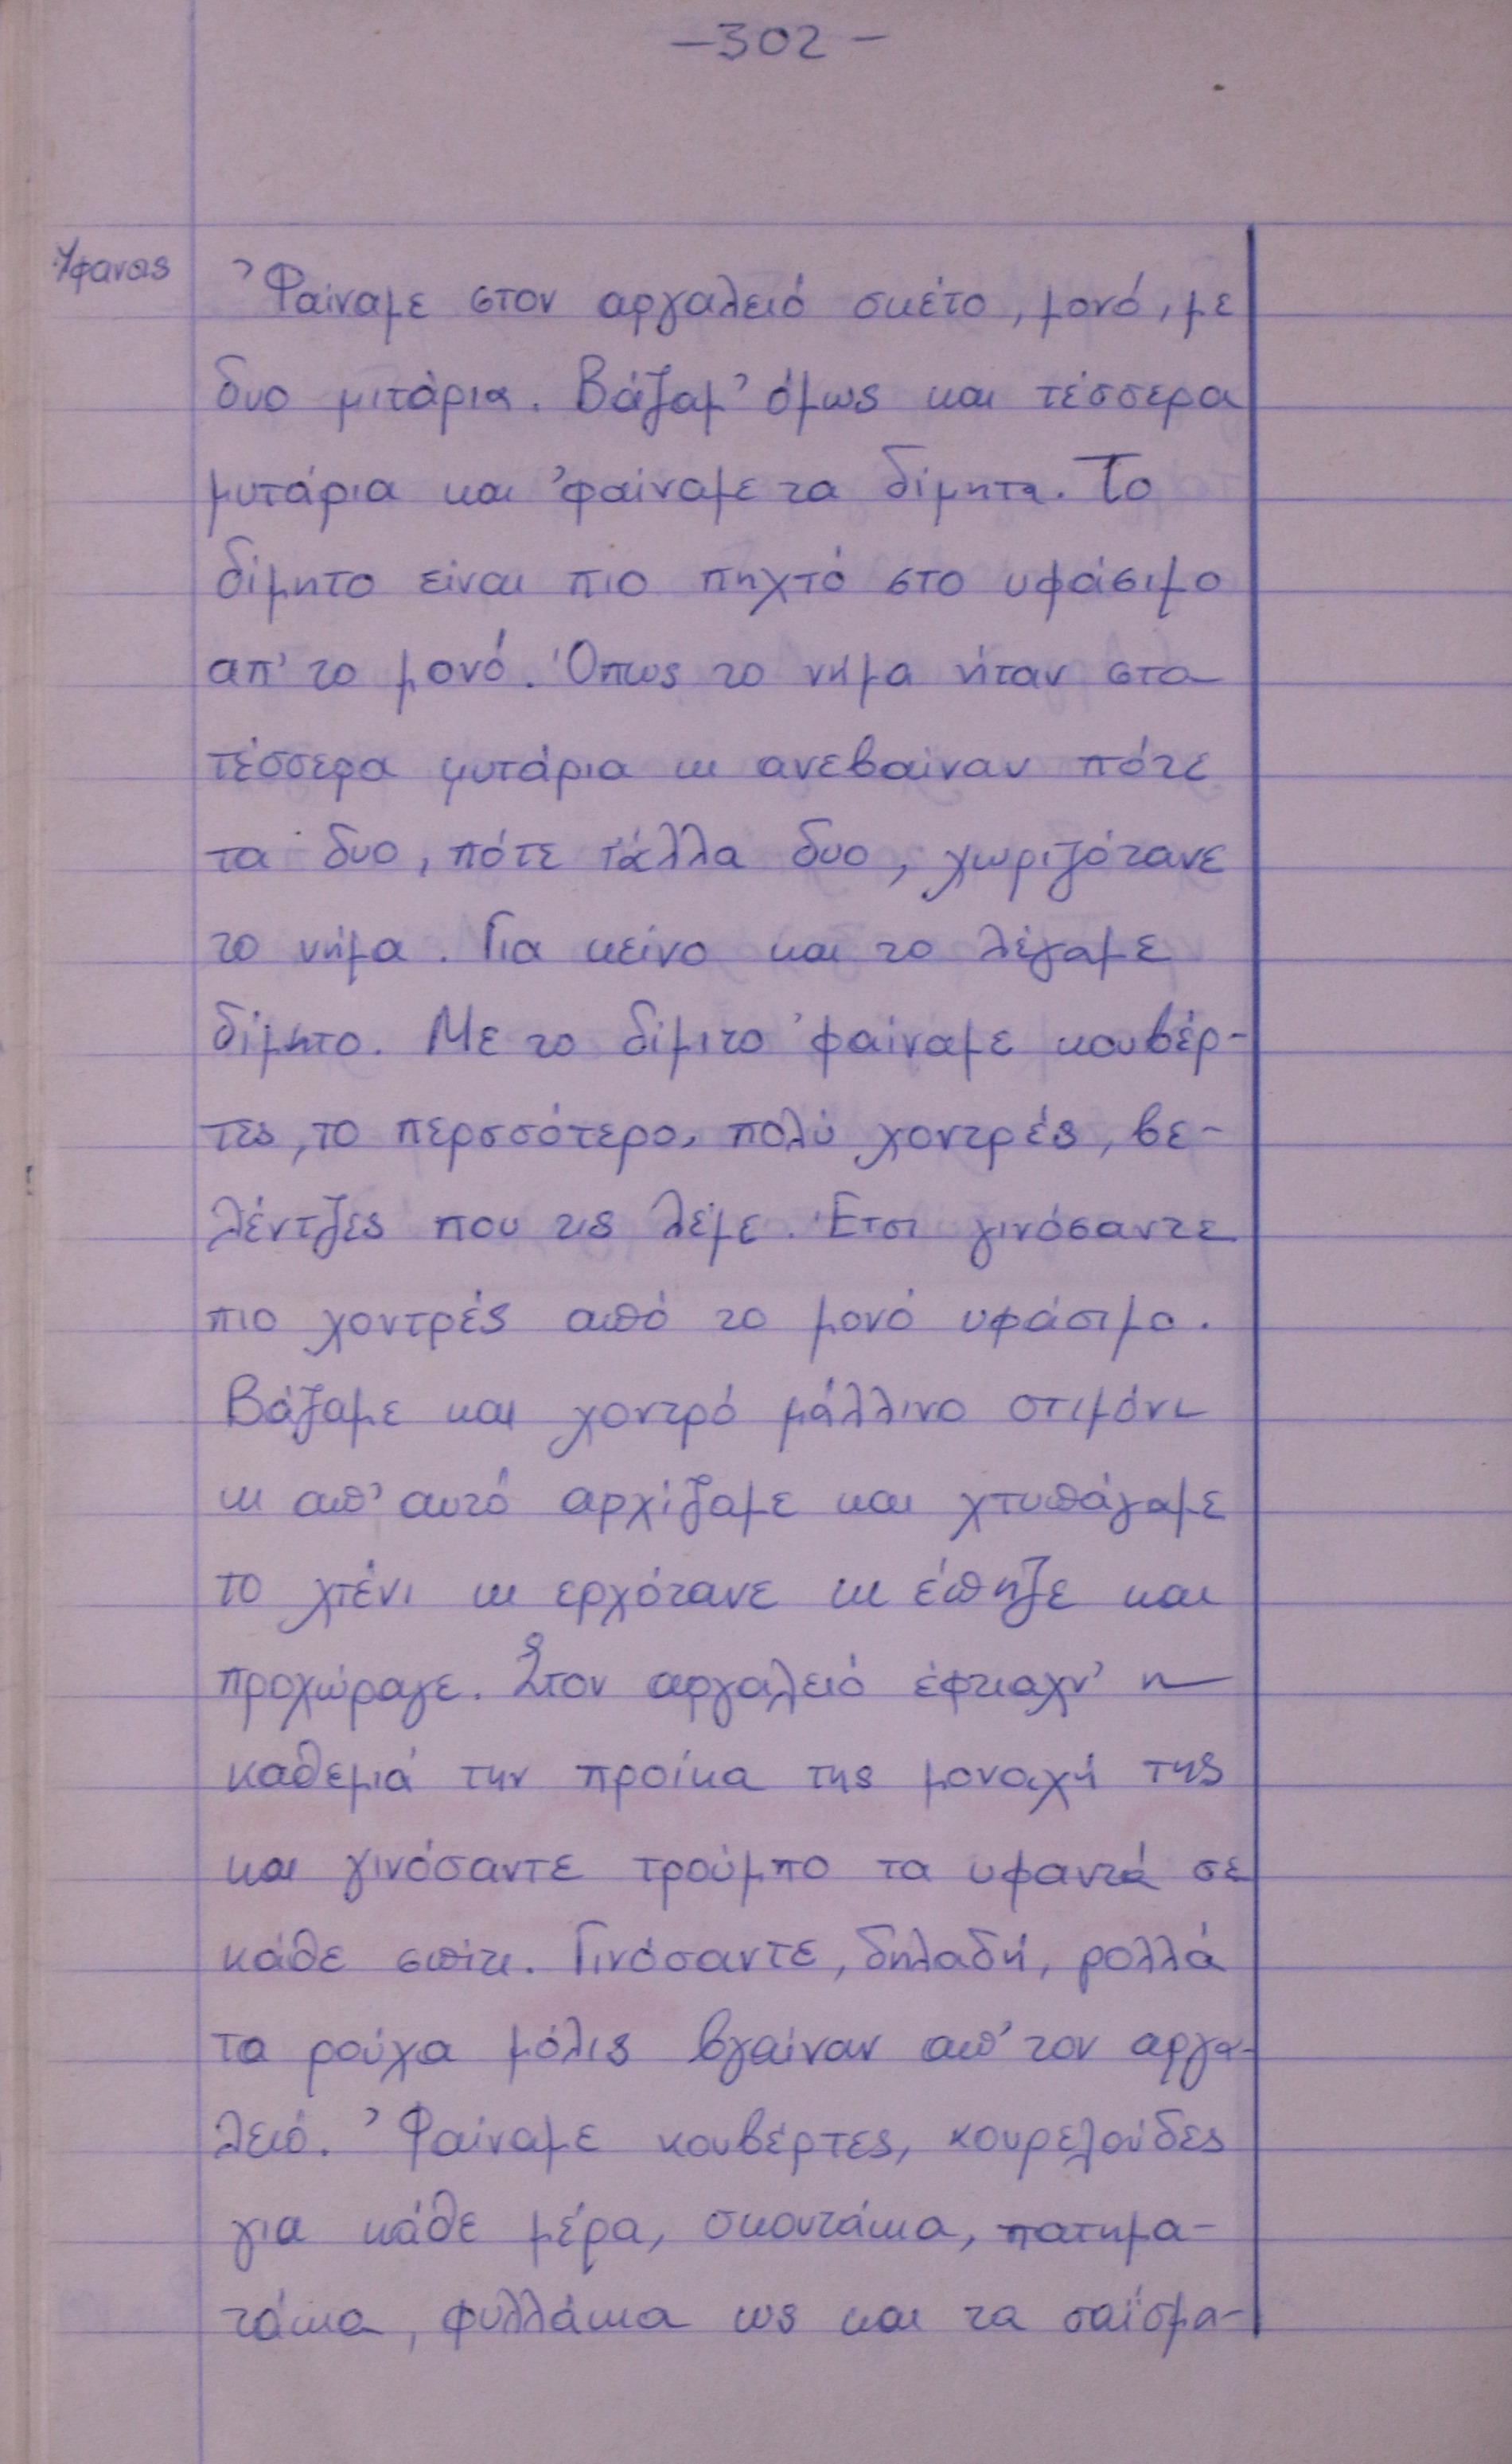 -302-
Ύφανσις
'Φαίναμε στον αργαλειό σκέτο, μονό, με
δυο μιτάρια. Βάζαμ' όμως και τέσσερα
μυτάρια και 'φαίναμε τα δίμητα. Το
δίμητο είναι πιο πηχτό στο υφάσιμο
απ' το μονό. Όπως το νήμα ήταν στα
τέσσερα μυτάρια κι ανεβαίναν πότε
τα δυο, πότε τάλλα δυο, χωριζότανε
το νήμα. Για κείνο και το λέγαμε
δίμητο. Με το δίμιτο 'φαίναμε κουβέρ-
τες, το περσσότερο, πολύ χοντρές, βε-
λέντζες που τις λέμε. Έτσι γινόσαντε
πιο χοντρές από το μονό υφάσιμο.
Βάζαμε και χοντρό μάλλινο στιμόνι
κι απ' αυτό αρχίζαμε και χτυπάγαμε
το χτένι κι ερχότανε κι έπηζε και
προχώραγε. Στον αργαλειό έφτιαχν' η
καθεμιά την προίκα της μοναχή της
και γινόσαντε τρούμπο τα υφαντά σε
κάθε σπίτι. Γινόσαντε, δηλαδή, ρολλά
τα ρούχα μόλις βγαίναν απ' τον αργα-
λειό. 'Φαίναμε κουβέρτες, κουρελούδες
για κάθε μέρα, σκουτάκια, πατημα-
τάκια, φυλλάκια ως και τα σαΐσμα-